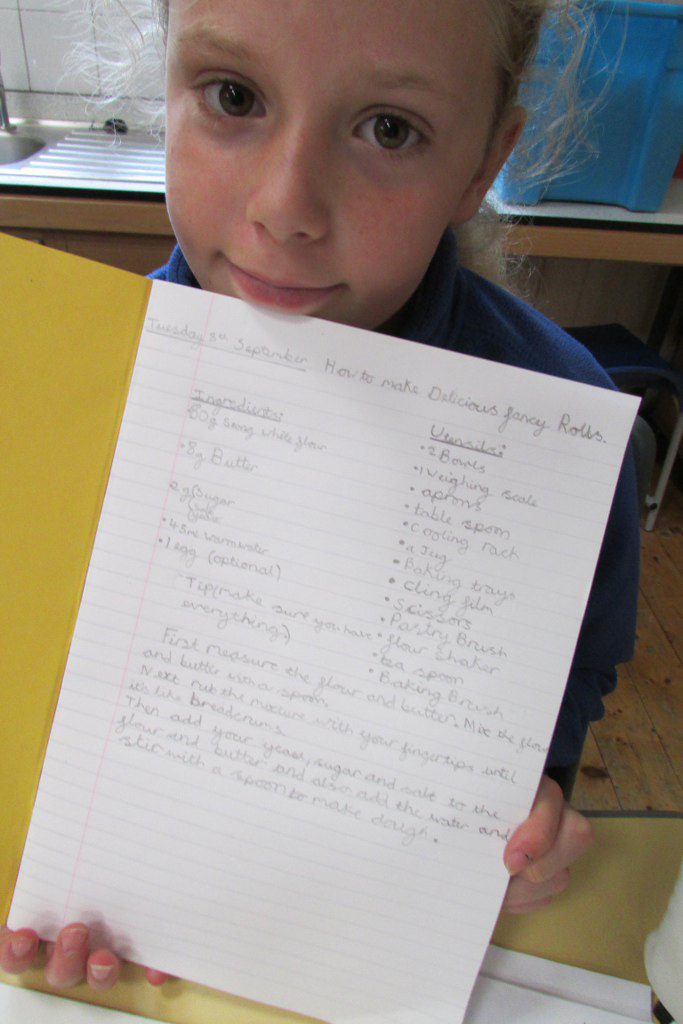 Tuesday 8th September How to make Delicious fancy Rolls.
Ingredients:
80g Strong white flour
• 8g Butter
2g Sugar
salt
yeast
• 45ml warm water
• 1 egg (optional)
Utensils:
• 2 Bowls
• 1 Weighing scale
• aprons
• table spoon
• Cooling rack
• a Jug
• Baking trays
• Cling film
• Scissors
• Pastry Brush
• flour shaker
• tea spoon
• Baking Brush
Tip(make sure you have
everything)
First measure the flour and butter. Mix the flour
and butter with a spoon.
Next rub the mixture with your fingertips until
it's like breadcrums.
Then add your yeast, sugar and salt to the
flour and butter and also add the water and
stir with a spoon to make dough.